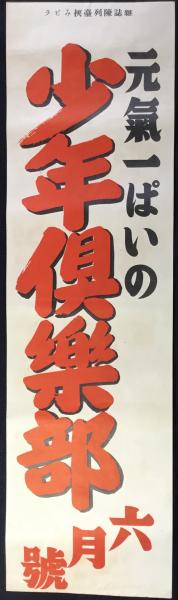 雑誌陳列臺橫みビラ
元氣一ぱいの
少年倶樂部
六月號